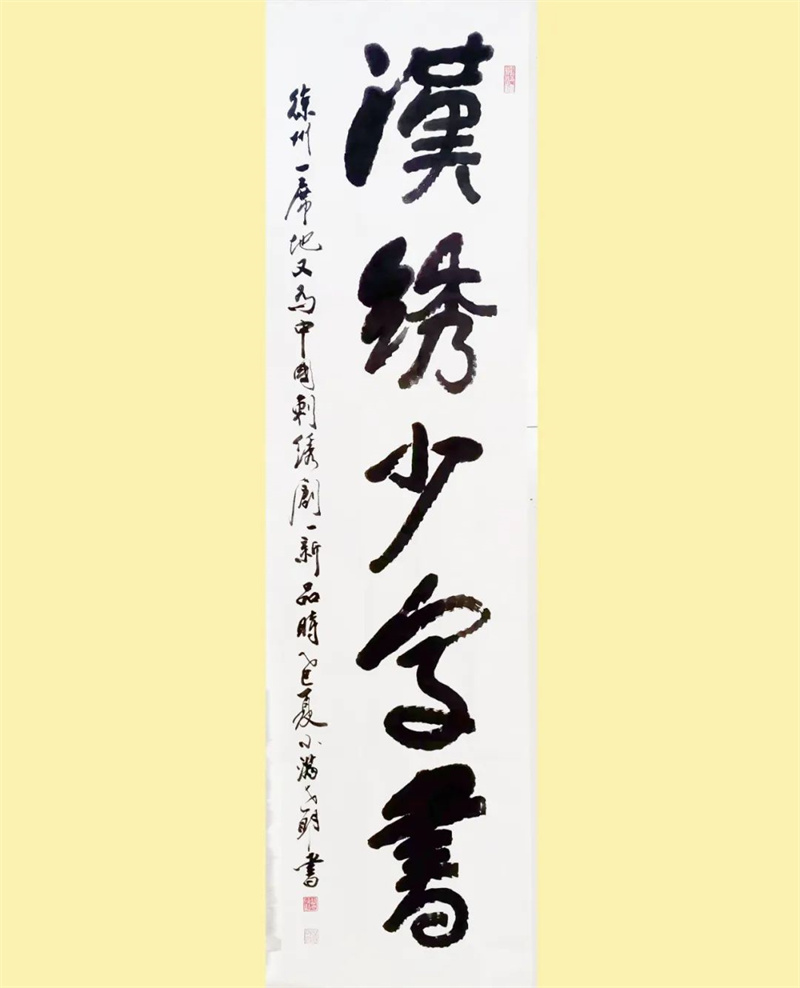 漢綉少字書
徐州一席地又為中國刺綉創一新品時乙巳夏小滿之節書